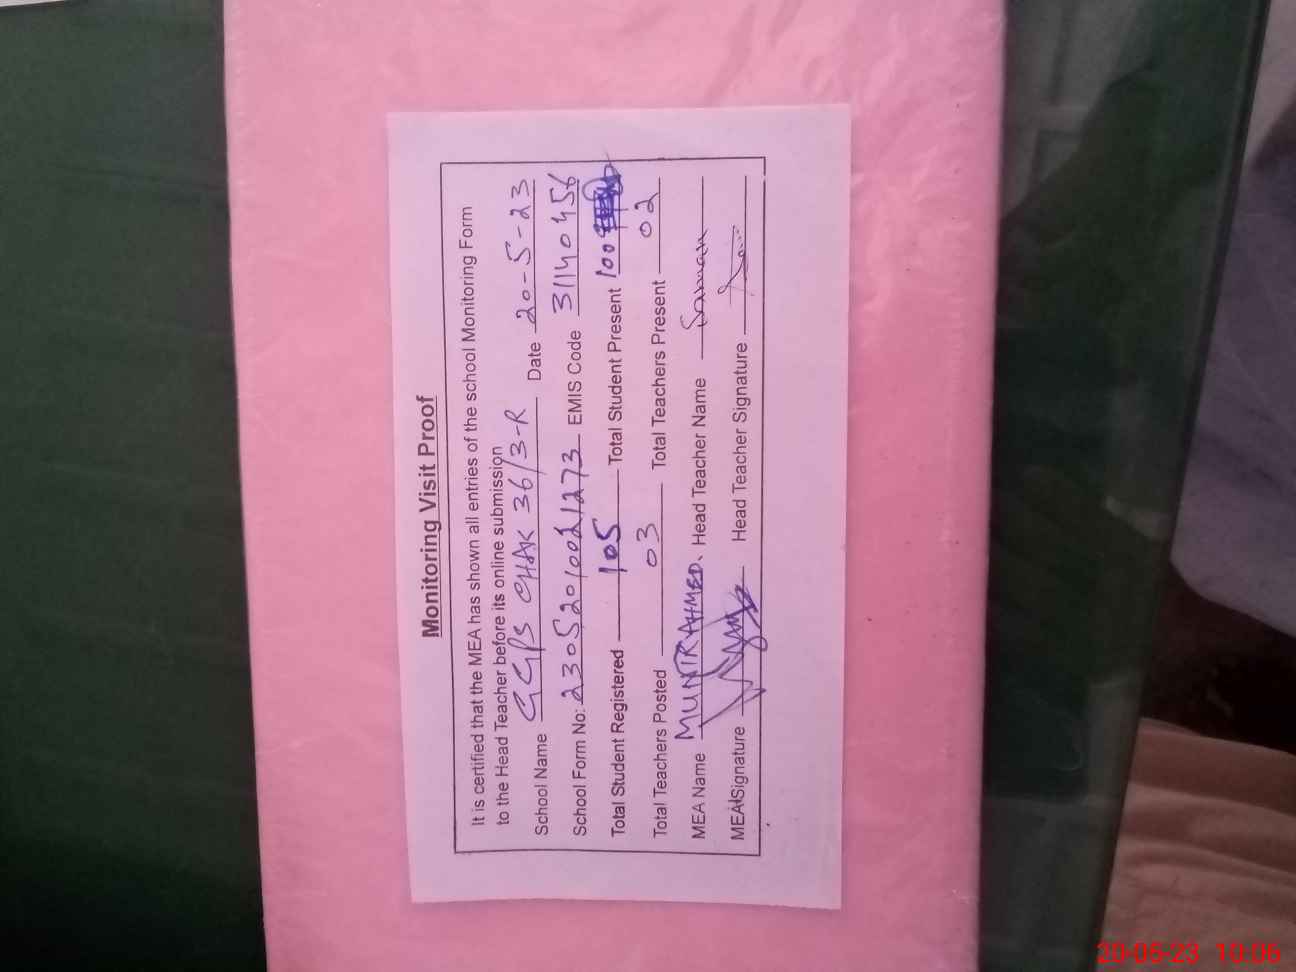 Monitoring Visit Proof
It is certified that the MEA has shown all entries of the school Monitoring Form
to the Head Teacher before its online submission
School Name GGPS CHAK 36/3-R Date 20-5-23
School Form No: 23052010021273 EMIS Code 31140456
Total Student Registered 105 Total Student Present 100
Total Teachers Posted 03 Total Teachers Present 02
MEA Name MUNIR AHMED. Head Teacher Name Saman
MEA Signature Head Teacher Signature
20-05-23 10:06